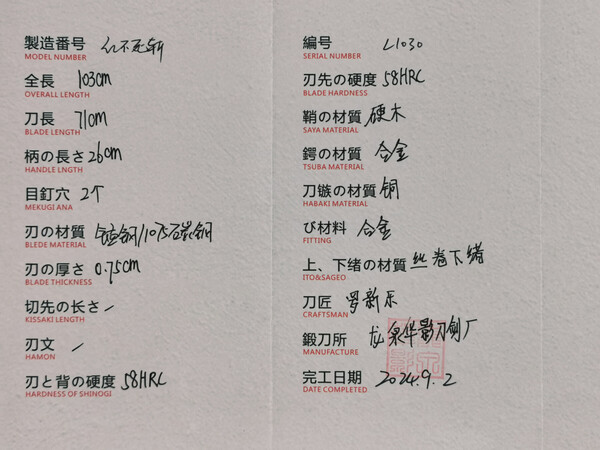 製造番号 红不死斩
MODEL NUMBER
全長 103cm
OVERALL LENGTH
刀長 71cm
BLADE LENGTH
柄の長さ 26cm
HANDLE LNGTH
目釘穴 2个
MEKUGI ANA
刃の材質 锰钢/1075碳钢
BLEDE MATERIAL
刃の厚さ 0.75cm
BLADE THICKNESS
切先の長さ /
KISSAKI LENGTH
刃文 /
HAMON
刃と背の硬度 58HRC
HARDNESS OF SHINOGI
編号 L1030
SERIAL NUMBER
刃先の硬度 58HRC
BLADE HARDNESS
鞘の材質 硬木
SAYA MATERIAL
鍔の材質 合金
TSUBA MATERIAL
刀镞の材質 铜
HABAKI MATERIAL
び材料 合金
FITTING
上、下绪の材質 丝卷下绪
ITO&SAGEO
刀匠 罗新乐
CRAFTSMAN
鍛刀所 龙泉华影刀剑厂
MANUFACTURE
完工日期 2024.9.2
DATE COMPLETED